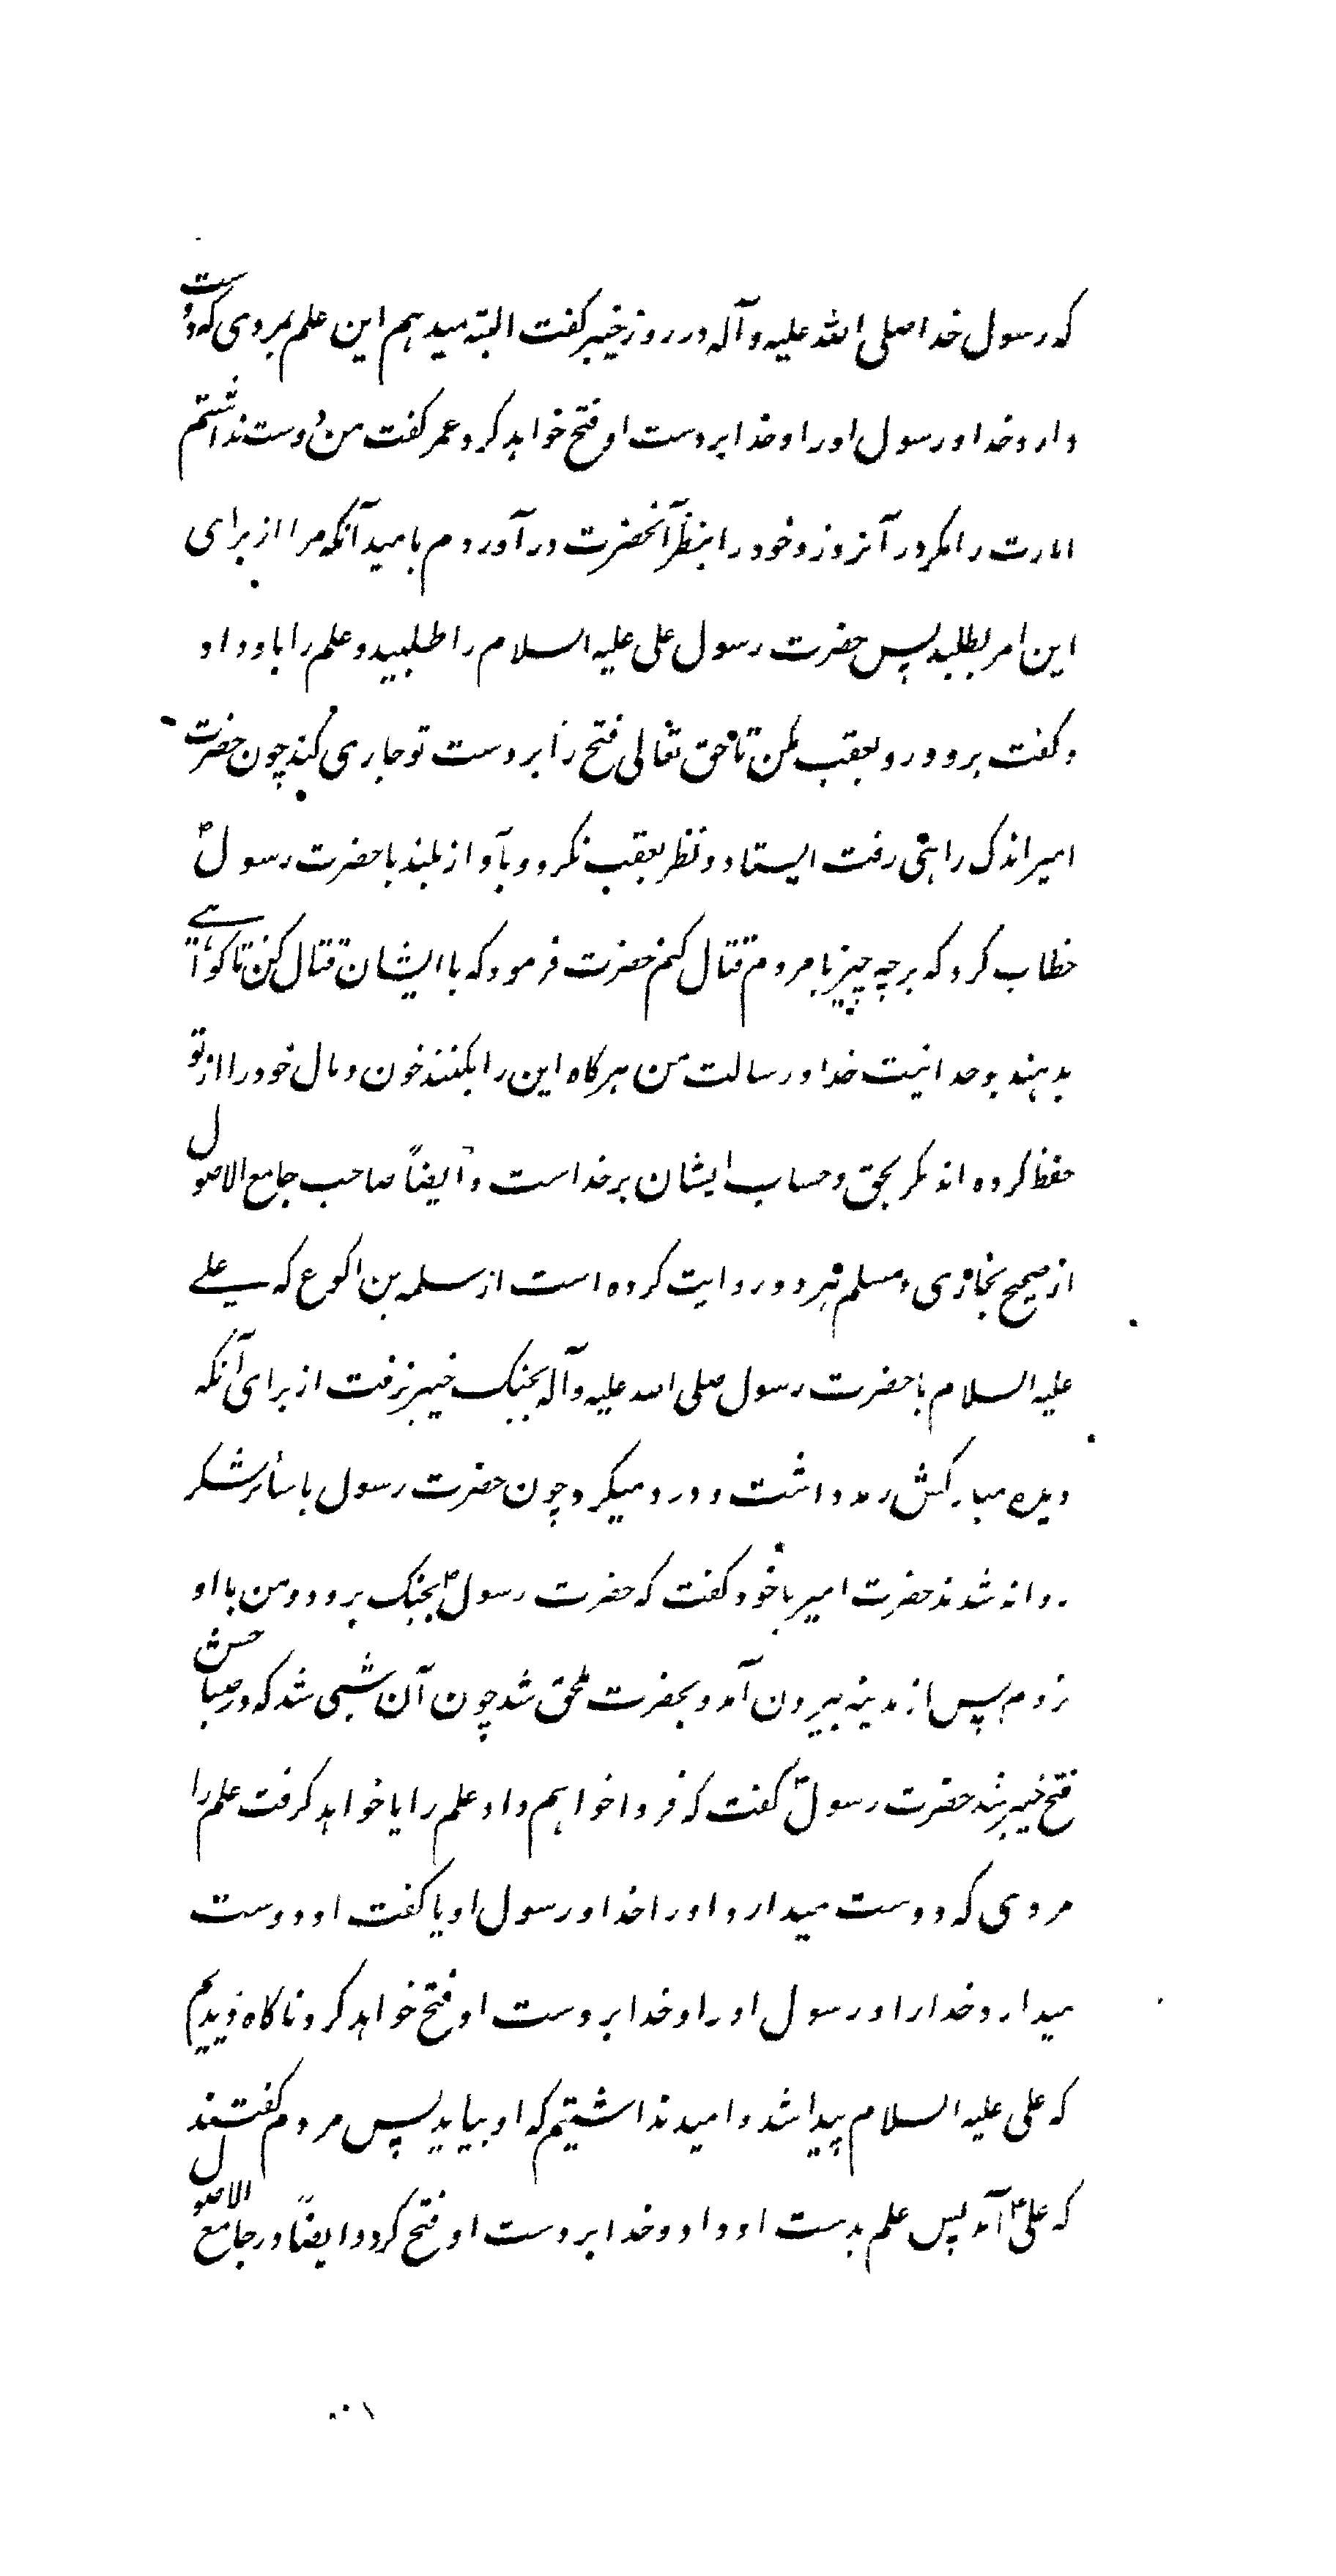 که رسول خدا صلی الله علیه و آله در روز خیبر کفت البته میدهم این علم بمردی که دوست
دارد خدا و رسول او را و خدا بر دست او فتح خواهد کرد عمر کفت من دوست نداشتم
امارت را مکر در آنروز و خود را بنظر آنحضرت در آوردم بامید آنکه مرا از برای
این امر بطلبد پس حضرت رسول علی علیه السلام را طلبید و علم را باو داد
و کفت برو و رو بعقب مکن تا حق تعالی فتح را بر دست تو جاری کند چون حضرت
امیر اندک راهی رفت ایستاد و نظر بعقب نکرد و بآواز بلند با حضرت رسول ص
خطاب کرد که بر چه چیز با مردم قتال کنم حضرت فرمود که با ایشان قتال کن تا کواهی
بدهند بوحدانیت خدا و رسالت من هرکاه این را بکنند خون و مال خود را از تو
حفظ کرده اند مکر بحق و حساب ایشان بر خداست و ایضاً صاحب جامع الاصول
از صحیح بخاری و مسلم هر دو روایت کرده است از سلمه بن اکوع که علی
علیه السلام با حضرت رسول صلی الله علیه و آله بجنک خیبر نرفت از برای آنکه
دیده مبارکش رمد داشت و درد میکرد چون حضرت رسول با سائر لشکر
روانه شدند حضرت امیر با خود کفت که حضرت رسول ص بجنک برود و من با او
نروم پس از مدینه بیرون آمد و بحضرت ملحق شد چون آن شبی شد که در صباحش
فتح خیبر شد حضرت رسول ص کفت که فردا خواهم داد علم را یا خواهد کرفت علم را
مردی که دوست میدارد او را خدا و رسول او یا کفت او دوست
میدارد خدا را و رسول او را و خدا بر دست او فتح خواهد کرد ناکاه دیدیم
که علی علیه السلام پیدا شد و امید نداشتیم که او بیاید پس مردم کفتند
که علی ع آمد پس علم بدست او داد و خدا بر دست او فتح کرد و ایضاً در جامع الاصول